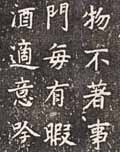 物不著事
門每有暇
酒適意吟